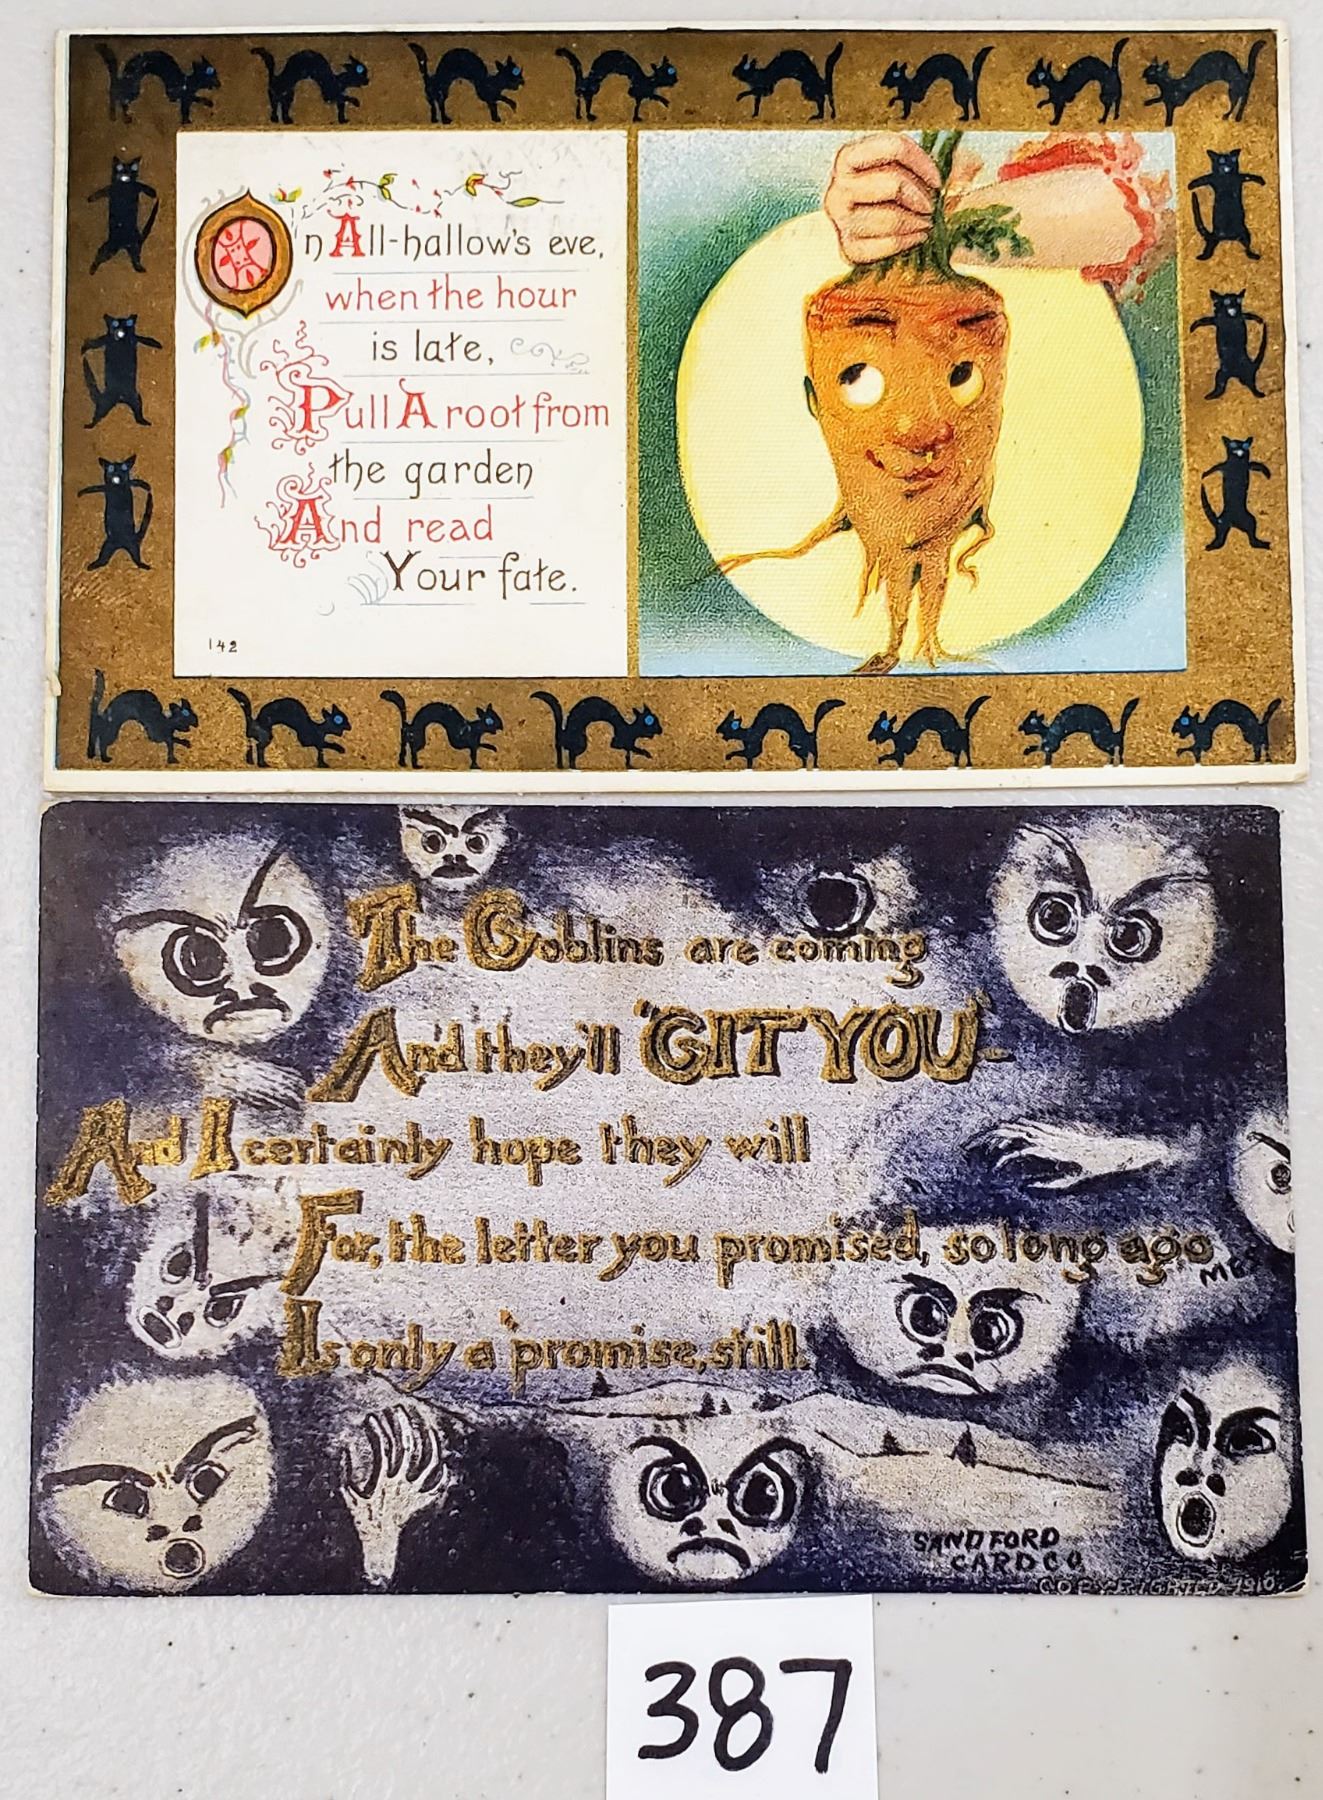 On All-hallow's eve,
when the hour
is late,
Pull A root from
the garden
And read
Your fate.
142
The Goblins are coming
And they'll "GIT YOU"-
And I certainly hope they will
For, the letter you promised, so long ago
Is only a promise, still.
SANDFORD
CARD CO
COPYRIGHTED-1910
387